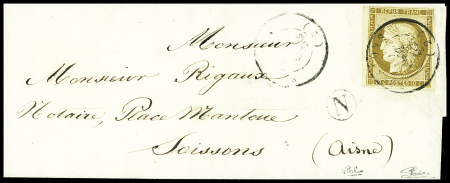 REPUB. FRANC.
10 POSTES 10
Monsieur
Monsieur Rigaux
Notaire, Place Mantoue
N
Soissons (Aisne)